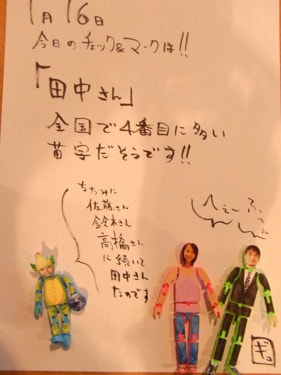 1月16日
今日のチェック&マークは!!
「田中さん」
全国で4番目に多い
苗字だそうです!!
ちなみに
佐藤さん
鈴木さん
高橋さん
に続いて
田中さん
なのです
へぇ〜
ふ〜ん
ギョ